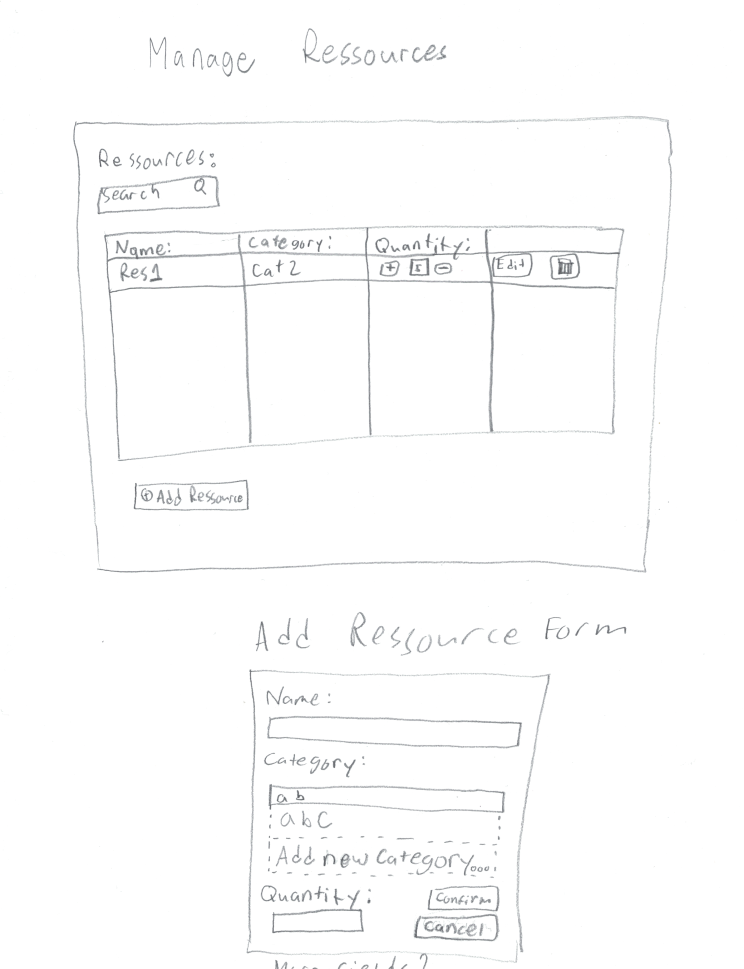 Manage Ressources
Ressources:
Search
Name: Category: Quantity:
Res1 Cat2 + 1 - Edit
+ Add Ressource
Add Ressource Form
Name:
Category:
ab
abc
Add new Category...
Quantity: Confirm
Cancel